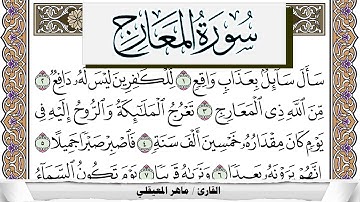 سُورَةُ المَعَارِجِ
سَأَلَ سَآئِلٌۢ بِعَذَابٖ وَاقِعٖ ١ لِّلۡكَٰفِرِينَ لَيۡسَ لَهُۥ دَافِعٞ ٢
مِّنَ ٱللَّهِ ذِي ٱلۡمَعَارِجِ ٣ تَعۡرُجُ ٱلۡمَلَٰٓئِكَةُ وَٱلرُّوحُ إِلَيۡهِ فِي
يَوۡمٖ كَانَ مِقۡدَارُهُۥ خَمۡسِينَ أَلۡفَ سَنَةٖ ٤ فَٱصۡبِرۡ صَبۡرٗا جَمِيلًا ٥
إِنَّهُمۡ يَرَوۡنَهُۥ بَعِيدٗا ٦ وَنَرَىٰهُ قَرِيبٗا ٧ يَوۡمَ تَكُونُ ٱلسَّمَآءُ
القارئ / ماهر المعيقلي